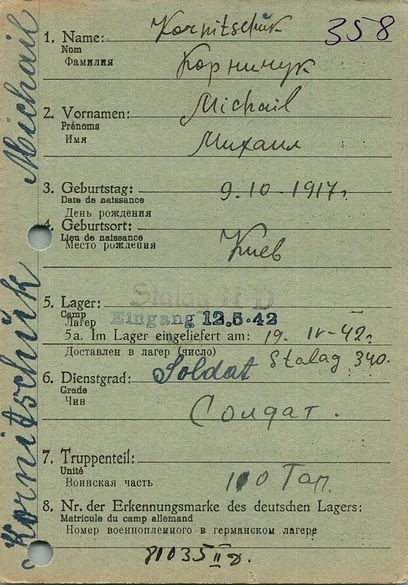 358
1. Name: Kornitschük
Nom
Фамилия Корничук
2. Vornamen: Michail
Prénoms
Имя Михаил
3. Geburtstag: 9.10-1917г.
Date de naissance
День рождения
4. Geburtsort:
Lieu de naissance Киев
Место рождения
5. Lager: Stalag II D
Camp
Лагер Eingang 12.5.42
5a. Im Lager eingeliefert am: 19. IV-42г.
Доставлен в лагер (число) Stalag 340.
6. Dienstgrad: Soldat
Grade
Чин Солдат.
7. Truppenteil:
Unité
Воинская часть 100
8. Nr. der Erkennungsmarke des deutschen Lagers:
Matricule du camp allemand
Номер военнопленного в германском лагере
81035 II D.
Kornitschük Michail